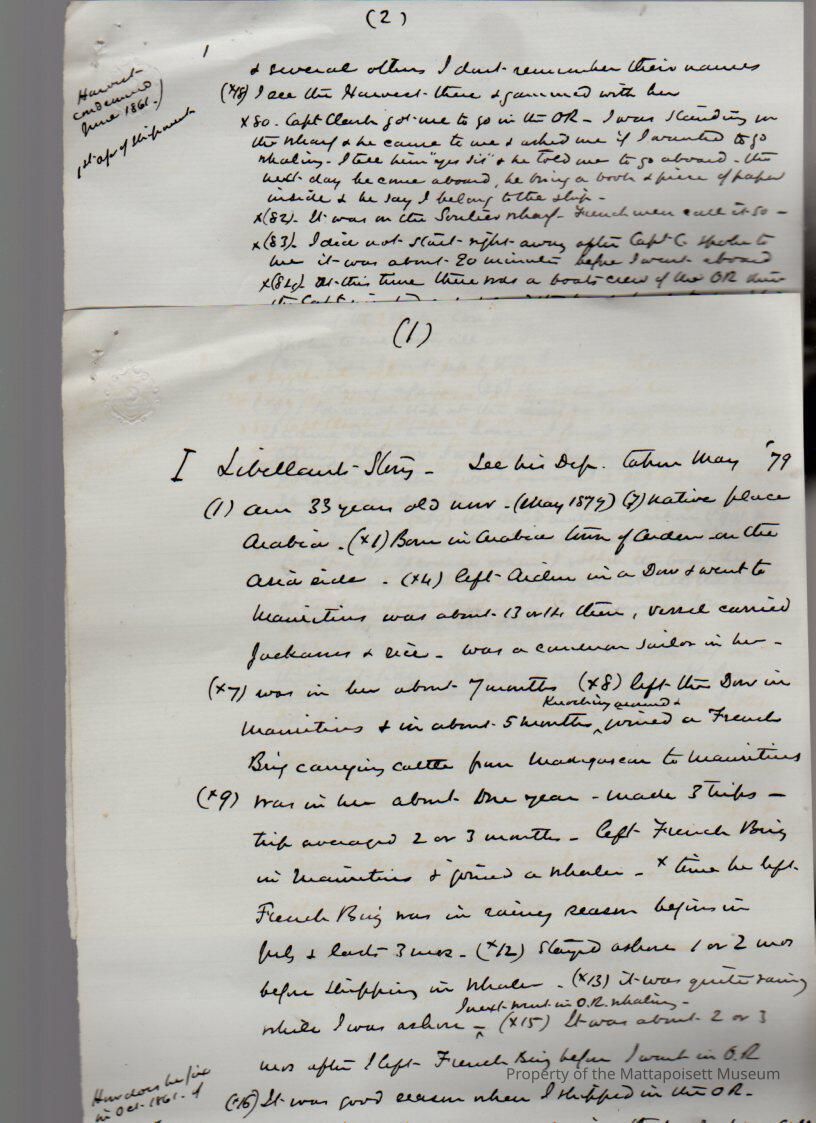 (2)
& several others I dont remember their names
Harvest
condemned
June 1861.
1st op of shipment
(x78) I see the Harvest there & gammed with her
x80. Capt Clark got me to go in the OR - I was standing on
the wharf & he came to me & asked me if I wanted to go
whaling. I tell him "yes sir" & he told me to go aboard - the
next day he come aboard, he bring a book & piece of paper
inside & he say I belong to the ship -
x(82). It was on the wharf - French men call it so -
x(83). I did not start right away after Capt C. spoke to
me it was about 20 minutes before I went aboard
x(84). At this time there was a boats crew of the OR
the Capt
(1)
I Libellants Story - See his Dep. taken May '79
(1) am 33 years old now - (May 1879) (7) native place
Arabia. (x1) Born in Arabia town of Arden on the
Asia side - (x4) left Aiden in a Dow & went to
Mauritius was about 13 or 14 then, vessel carried
Jackasses & rice - was a common sailor in her -
(x7) was in her about 7 months (x8) left the Dow in
Mauritius & in about 5 months Knocking around & joined a French
Brig carrying cattle from Madagascar to Mauritius
(x9) was in her about One year - made 3 trips -
trip averaged 2 or 3 months - left French Brig
in Mauritius & joined a whaler - x time he left
French Brig was in rainy season begins in
July & lasts 3 mos. - (x12) Stayed ashore 1 or 2 mos
before shipping in whaler - (x13) it was quite rainy
I next went in O.R. whaling -
while I was ashore - (x15) It was about 2 or 3
mos after I left French Brig before I went in O.R
How does he fix
in Oct. 1861. if
(x16) It was good season when I shipped in the OR.
Property of the Mattapoisett Museum